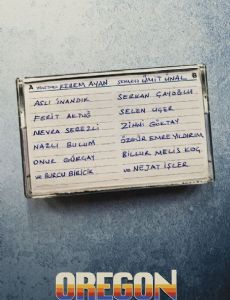 A YÖNETMEN KEREM AYAN SENARYO ÜMİT ÜNAL B
ASLI İNANDIK SERKAN ÇAYOĞLU
FERİT AKTUĞ SELEN UÇER
NEVRA SEREZLİ ZİHNİ GÖKTAY
NAZLI BULUM ÖZGÜR EMRE YILDIRIM
ONUR GÜRÇAY BİLLUR MELİS KOÇ
VE BURCU BİRİCİK VE NEJAT İŞLER
OREGON